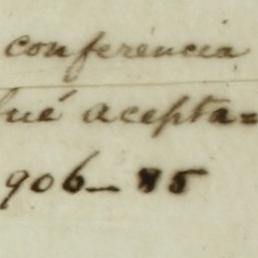 conferencia
fué acepta=
906_ 85